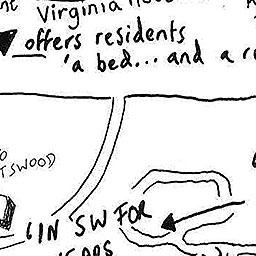 Virginia
offers residents
'a bed... and a
TSWOOD
'IN SW FOR